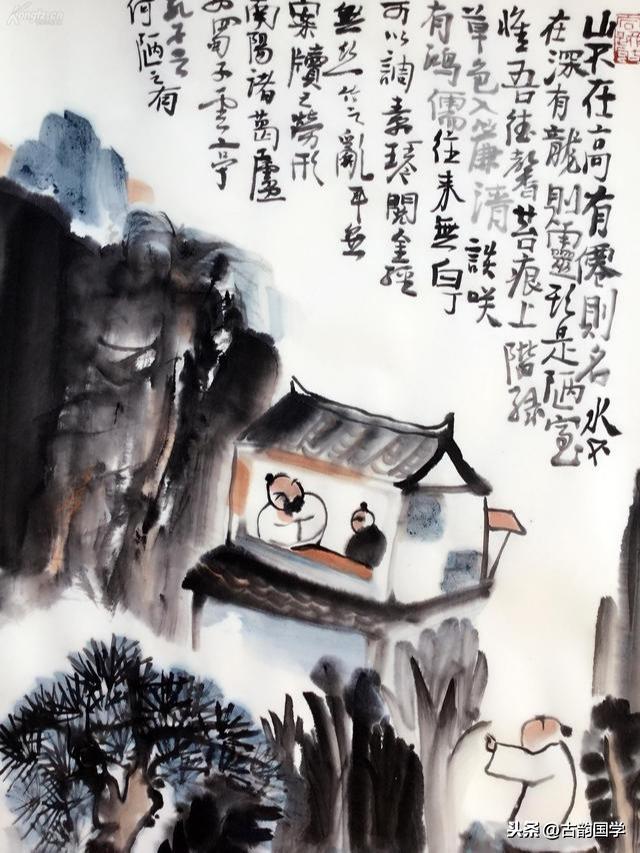 山不在高有僊則名水不
在深有龍則靈斯是陋室
惟吾德馨苔痕上階綠
草色入簾清談咲
有鴻儒往来無白丁
可以調素琴閱金經
無丝竹之亂耳無
案牘之勞形
南陽諸葛廬
西蜀子雲亭
孔子云
何陋之有
头条@古韵国学